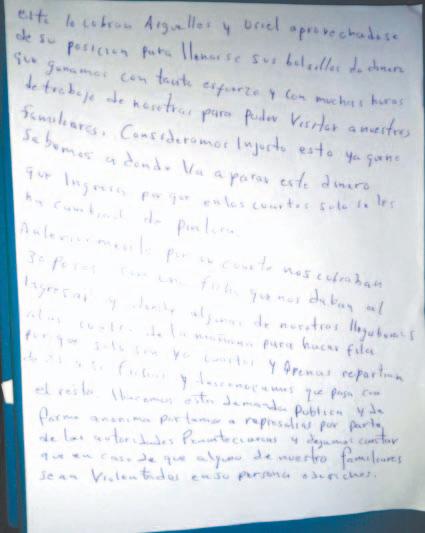 esto lo cobran Arguelles y Uriel aprovechadose
de su posicion para llenarse sus bolsillos de dinero
que ganamos con tanto esfuerzo y con muchas horas
de trabajo de nosotras para poder Visitar a nuestros
familiares. Consideramos Injusto esto ya que no
Sabemos a donde Va a parar este dinero
que Ingresa por que en los cuartos solo se les
ha cambiado de pintura.
Anteriormente por un cuarto nos cobraban
30 pesos con una ficha que nos daban al
Ingresar y donde algunas de nosotras llegabamos
a las de la mañana para hacer fila
por que solo son 40 cuartos y Apenas repartian
fichas y desconocemos que pasa con
el resto. Hacemos esta demanda publica y de
forma anonima por temor a represalias por parte
de las autoridades Penitenciarias y dejamos constar
que en caso de que alguno de nuestro familiares
sean Violentados en su persona o derechos.